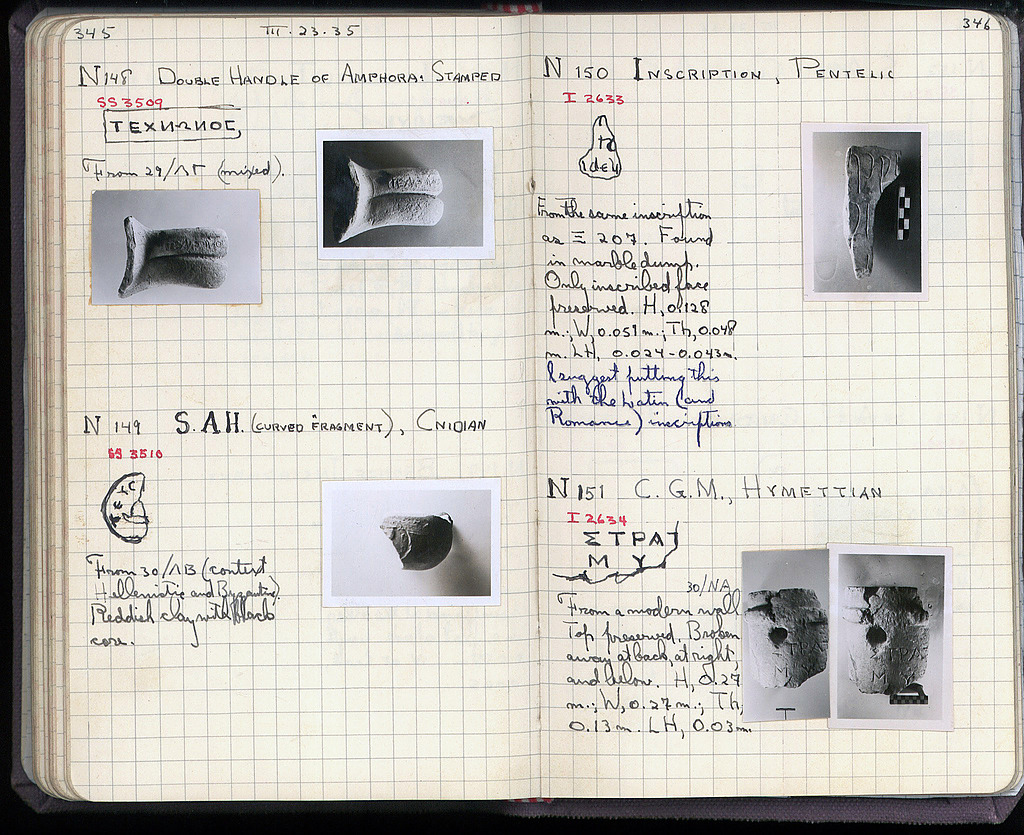 345
III. 23. 35
N 148 DOUBLE HANDLE OF AMPHORA: STAMPED
SS 3509
From 29/ΛΓ (mixed).
N 149 S.A.H. (CURVED FRAGMENT), CNIDIAN
SS 3510
From 30/ΛΒ (context
Hellenistic and Byzantine).
Reddish clay with black
core.
346
N 150 INSCRIPTION, PENTELIC
I 2633
From the same inscription
as Ξ 207. Found
in marble dump.
Only inscribed face
preserved. H, 0.128
m.; W, 0.051 m.; Th, 0.048
m. LH, 0.024-0.043 m.
I suggest putting this
with the Latin (and
Romance) inscriptions
N 151 C.G.M., HYMETTIAN
I 2634
ΣΤΡΑΤ
ΜΥ
30/ΝΑ
From a modern wall.
Top preserved. Broken
away at back, at right,
and below. H, 0.27
m.; W, 0.27 m.; Th,
0.13 m. LH, 0.03 m.